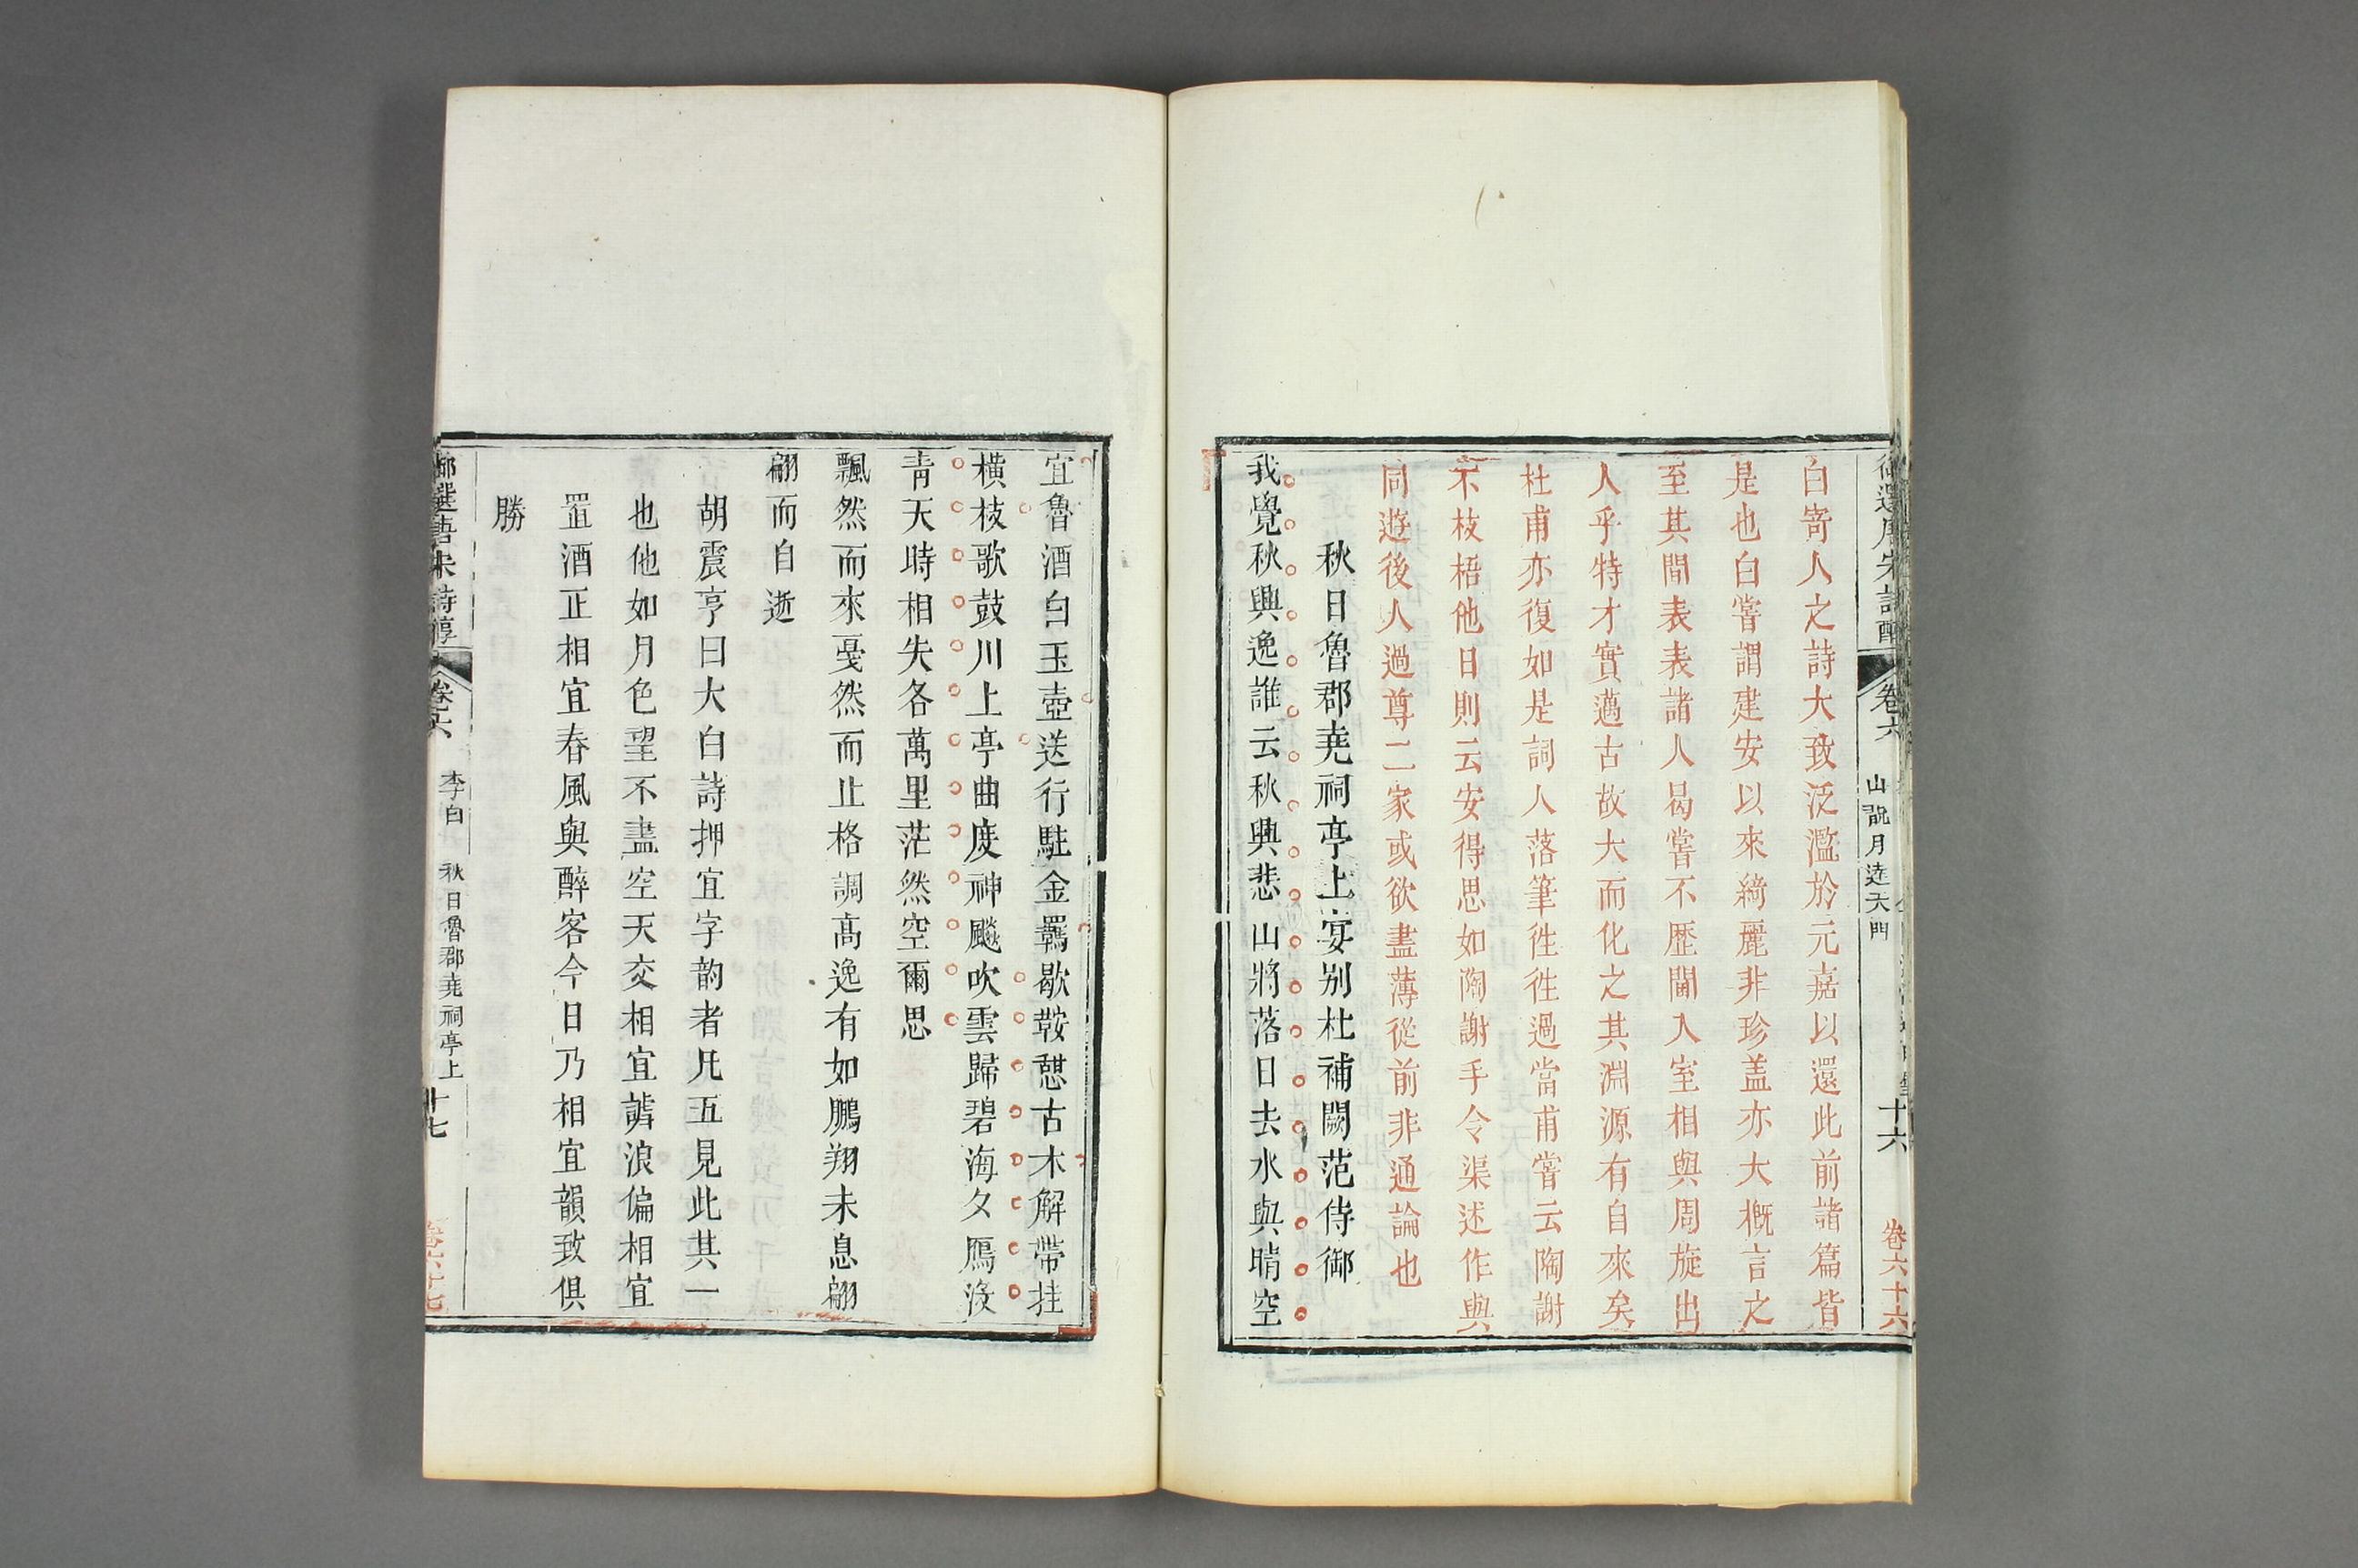 御選唐宋詩醇
卷六
山尋月達天門
十六
卷六十六
白寄人之詩大致泛濫於元嘉以還此前諸篇皆
是也白嘗謂建安以來綺麗非珍盖亦大概言之
至其間表表諸人曷嘗不歷閫入室相與周旋出
人乎特才實邁古故大而化之其淵源有自來矣
杜甫亦復如是詞人落筆徃徃過當甫嘗云陶謝
不枝梧他日則云安得思如陶謝手令渠述作與
同遊後人過尊二家或欲盡薄從前非通論也
秋日魯郡堯祠亭上宴別杜補闕范侍御
我覺秋興逸誰云秋興悲山將落日去水與晴空
宜魯酒白玉壺送行駐金羈歇鞍憩古木解帶挂
橫枝歌鼓川上亭曲度神飈吹雲歸碧海夕鴈没
青天時相失各萬里茫然空爾思
飄然而來戞然而止格調髙逸有如鵬翔未息翩
翩而自逝
胡震亨曰大白詩押宜字韵者凡五見此其一
也他如月色望不盡空天交相宜謔浪偏相宜
置酒正相宜春風與醉客今日乃相宜韻致俱
勝
御選唐宋詩醇
卷六
李白
秋日魯郡堯祠亭上
十七
卷六十七